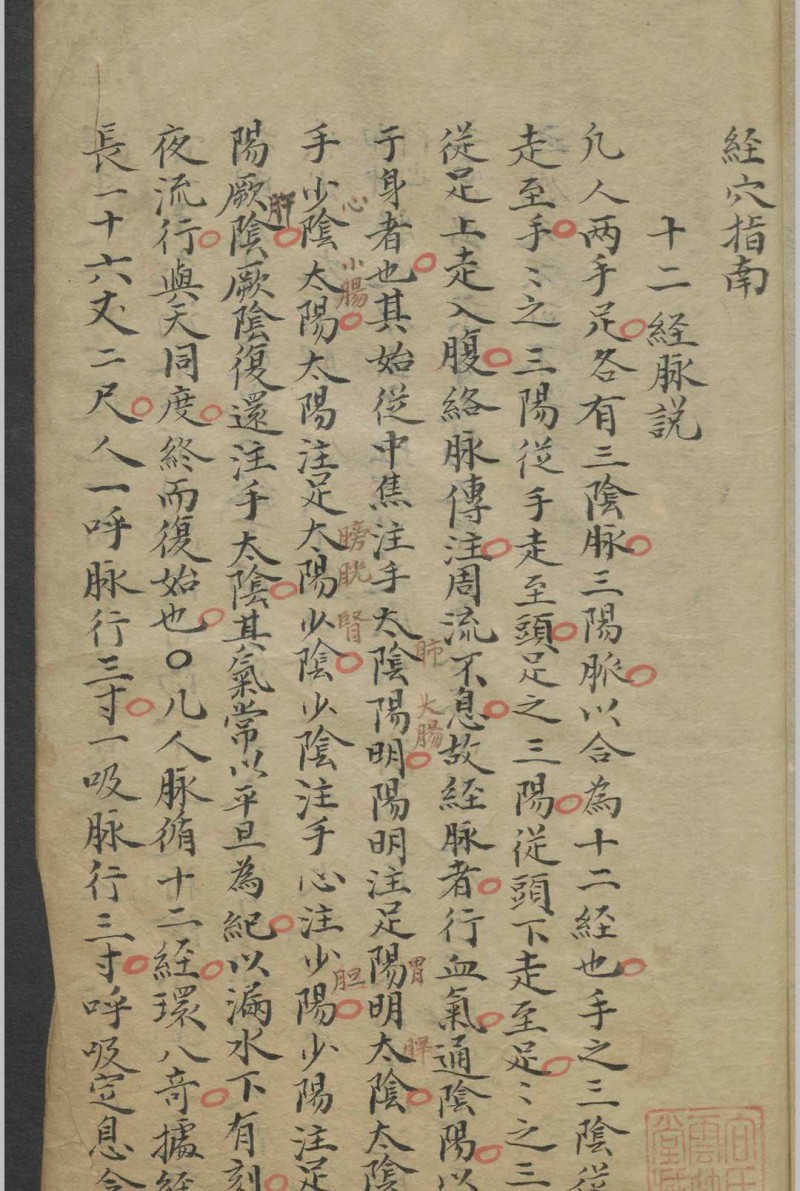 経穴指南
十二経脉説
凡人两手足各有三陰脉三陽脈以合為十二経也手之三陰従
走至手〻之三陽従手走至頭足之三陽従頭下走至足〻之三
従足上走入腹絡脉傳注周流不息故経脉者行血氣通陰陽以
于身者也其始従中焦注手太陰陽明陽明注足陽明太陰太陰
肺
大腸
胃
脾
手少陰太陽太陽注足太陽少陰少陰注手心注少陽少陽注足
心
小腸
膀胱
腎
胆
陽厥陰厥陰復還注手太陰其氣常以平旦為紀以漏水下有刻
肝
夜流行與天同度終而復始也〇凡人脉循十二経環八奇據経
長一十六丈二尺人一呼脉行三寸一吸脉行三寸呼吸定息合